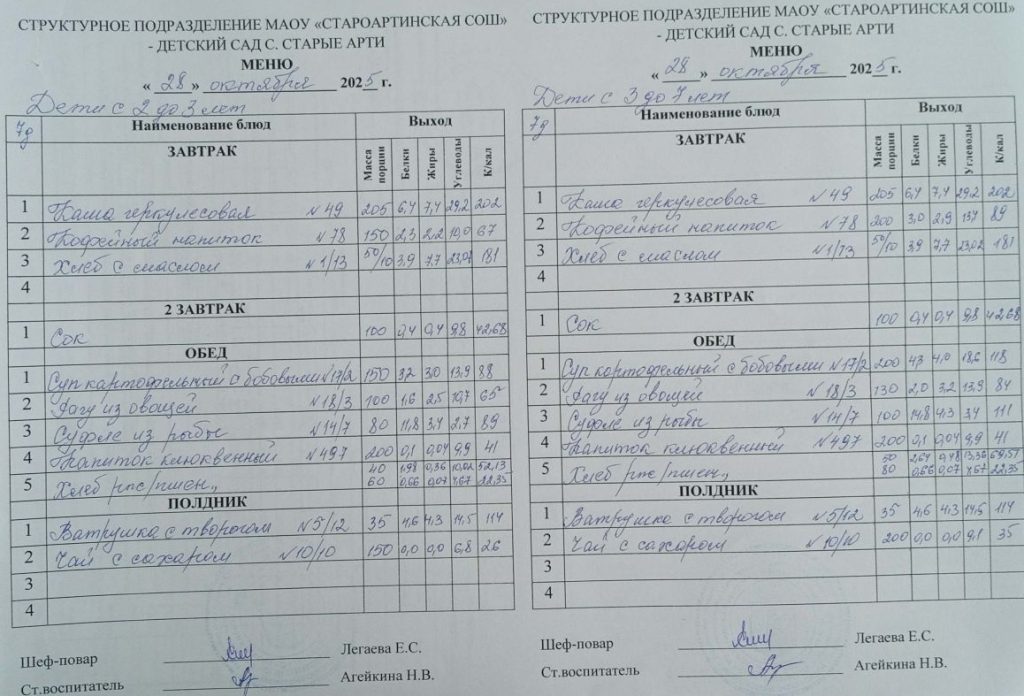 СТРУКТУРНОЕ ПОДРАЗДЕЛЕНИЕ МАОУ «СТАРОАРТИНСКАЯ СОШ»
- ДЕТСКИЙ САД С. СТАРЫЕ АРТИ
МЕНЮ
« 28 » октября 2025 г.
Дети с 2 до 3 лет
7д Наименование блюд Выход
ЗАВТРАК Масса порции Белки Жиры Углеводы К/кал
1 Каша геркулесовая №49 205 6,4 7,4 29,2 202
2 Кофейный напиток №78 150 2,3 2,2 10,0 67
3 Хлеб с маслом №1/13 50/10 3,9 7,7 23,02 181
4
2 ЗАВТРАК
1 Сок 100 0,4 0,4 9,8 42,68
ОБЕД
1 Суп картофельный с бобовыми №17/2 150 3,2 3,0 13,9 88
2 Рагу из овощей №18/3 100 1,6 2,5 10,7 65
3 Суфле из рыбы №14/7 80 11,8 3,4 2,7 89
4 Напиток клюквенный №497 200 0,1 0,04 9,9 41
5 Хлеб рж/пшен. 40 1,98 0,36 10,02 52,13
60 0,66 0,07 4,67 22,35
ПОЛДНИК
1 Ватрушка с творогом №5/12 35 4,6 4,3 14,5 114
2 Чай с сахаром №10/10 150 0,0 0,0 6,8 26
3
4
Шеф-повар Легаева Е.С.
Ст.воспитатель Агейкина Н.В.
СТРУКТУРНОЕ ПОДРАЗДЕЛЕНИЕ МАОУ «СТАРОАРТИНСКАЯ СОШ»
- ДЕТСКИЙ САД С. СТАРЫЕ АРТИ
МЕНЮ
« 28 » октября 2025 г.
Дети с 3 до 7 лет
7д Наименование блюд Выход
ЗАВТРАК Масса порции Белки Жиры Углеводы К/кал
1 Каша геркулесовая №49 205 6,4 7,4 29,2 202
2 Кофейный напиток №78 200 3,0 2,9 13,4 89
3 Хлеб с маслом №1/13 50/10 3,9 7,7 23,02 181
4
2 ЗАВТРАК
1 Сок 100 0,4 0,4 9,8 42,68
ОБЕД
1 Суп картофельный с бобовыми №17/2 200 4,3 4,0 18,6 118
2 Рагу из овощей №18/3 130 2,0 3,2 13,9 84
3 Суфле из рыбы №14/7 100 14,8 4,3 3,4 111
4 Напиток клюквенный №497 200 0,1 0,04 9,9 41
5 Хлеб рж/пшен. 50 2,64 0,48 13,36 69,51
80 0,66 0,07 4,67 22,35
ПОЛДНИК
1 Ватрушка с творогом №5/12 35 4,6 4,3 14,5 114
2 Чай с сахаром №10/10 200 0,0 0,0 9,1 35
3
4
Шеф-повар Легаева Е.С.
Ст.воспитатель Агейкина Н.В.